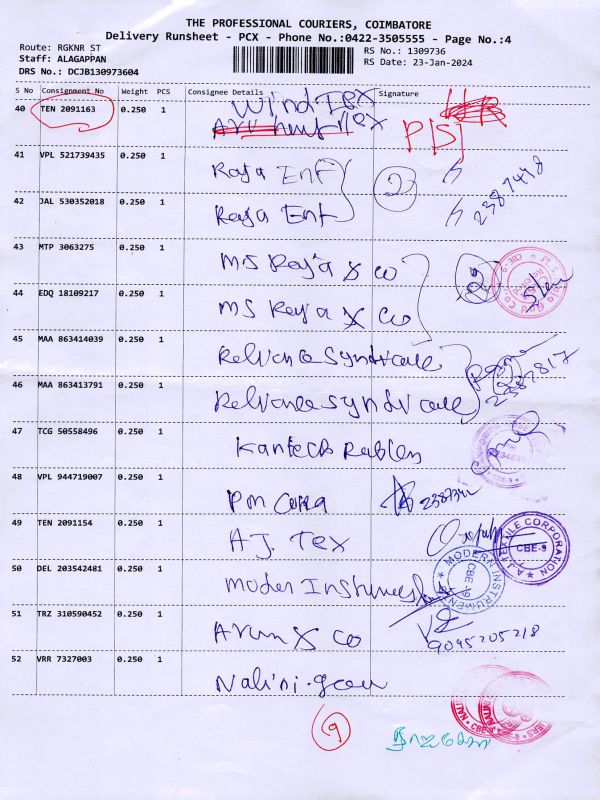 THE PROFESSIONAL COURIERS, COIMBATORE
Delivery Runsheet - PCX - Phone No.:0422-3505555 - Page No.:4
Route: RGKNR ST
RS No.: 1309736
Staff: ALAGAPPAN
RS Date: 23-Jan-2024
DRS No.: DCJB130973604
S No Consignment No Weight PCS Consignee Details Signature
40 TEN 2091163 0.250 1 Wind Tex
P/S
41 VPL 521739435 0.250 1 Raja Ent
2
2387448
42 JAL 530352018 0.250 1 Raja Ent
43 MTP 3063275 0.250 1 MS Raja & co
2
44 EDQ 18109217 0.250 1 MS Raja & co
45 MAA 863414039 0.250 1 Reliance Syndicate
2387817
46 MAA 863413791 0.250 1 Reliance Syndicate
47 TCG 50558496 0.250 1 Kantech Rubber
48 VPL 944719007 0.250 1 PM
49 TEN 2091154 0.250 1 A.J. Tex
A.J. TEXTILE CORPORATION CBE-9
50 DEL 203542481 0.250 1 Moder Instrumes
MODERN INSTRUMENT CBE-9
51 TRZ 310590452 0.250 1 Arun & co
9095205218
52 VRR 7327003 0.250 1 Nalini
9